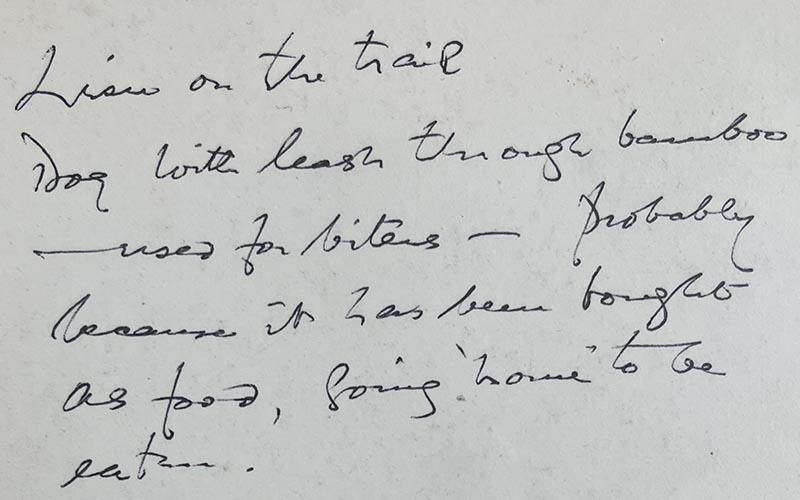 Lisu on the trail
Dog with leash through bamboo
— used for biters — Probably
because it has been bought
as food, going 'home' to be
eaten.